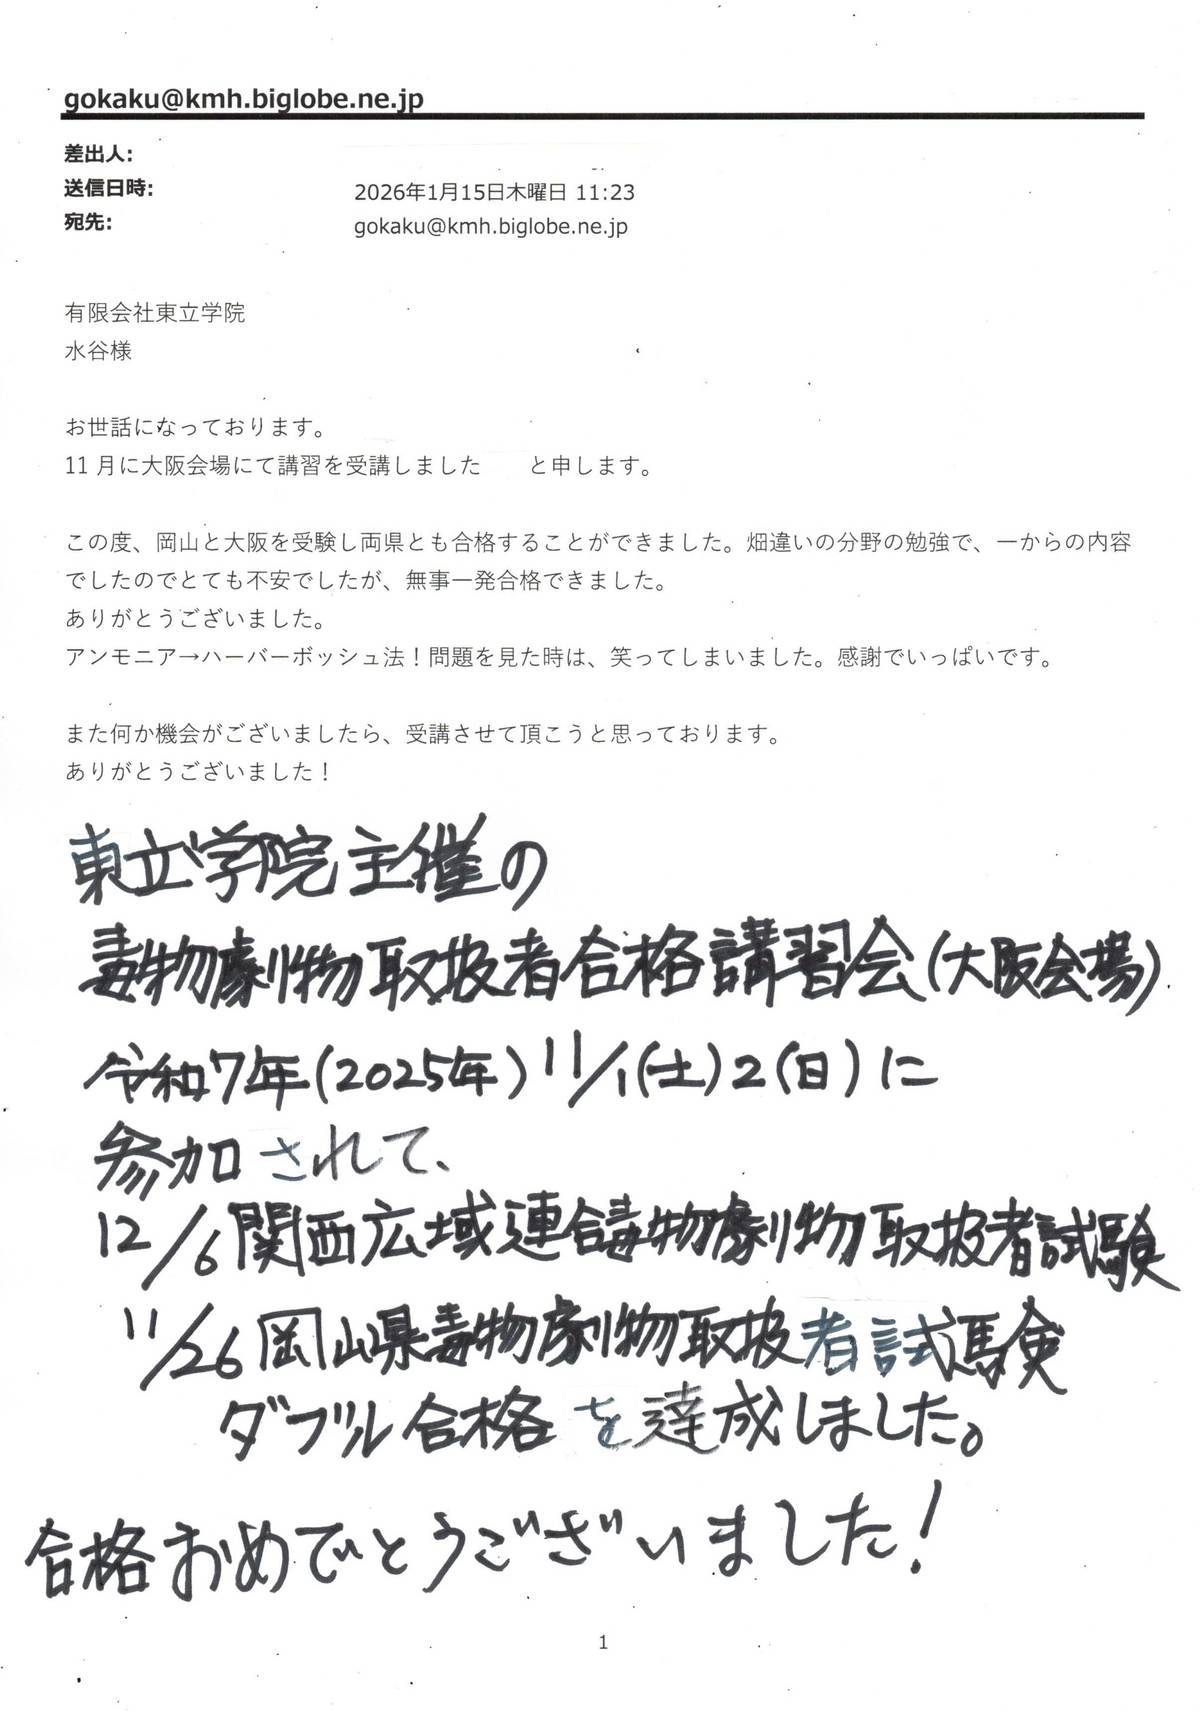 gokaku@kmh.biglobe.ne.jp
差出人:
送信日時: 2026年1月15日木曜日 11:23
宛先: gokaku@kmh.biglobe.ne.jp
有限会社東立学院
水谷様
お世話になっております。
11月に大阪会場にて講習を受講しました　　と申します。
この度、岡山と大阪を受験し両県とも合格することができました。畑違いの分野の勉強で、一からの内容
でしたのでとても不安でしたが、無事一発合格できました。
ありがとうございました。
アンモニア→ハーバーボッシュ法！問題を見た時は、笑ってしまいました。感謝でいっぱいです。
また何か機会がございましたら、受講させて頂こうと思っております。
ありがとうございました！
東立学院主催の
毒物劇物取扱者合格講習会(大阪会場)
令和7年(2025年)11/1(土)2(日)に
参加されて、
12/6関西広域連合毒物劇物取扱者試験
11/26岡山県毒物劇物取扱者試験
ダブル合格を達成しました。
合格おめでとうございました！
1